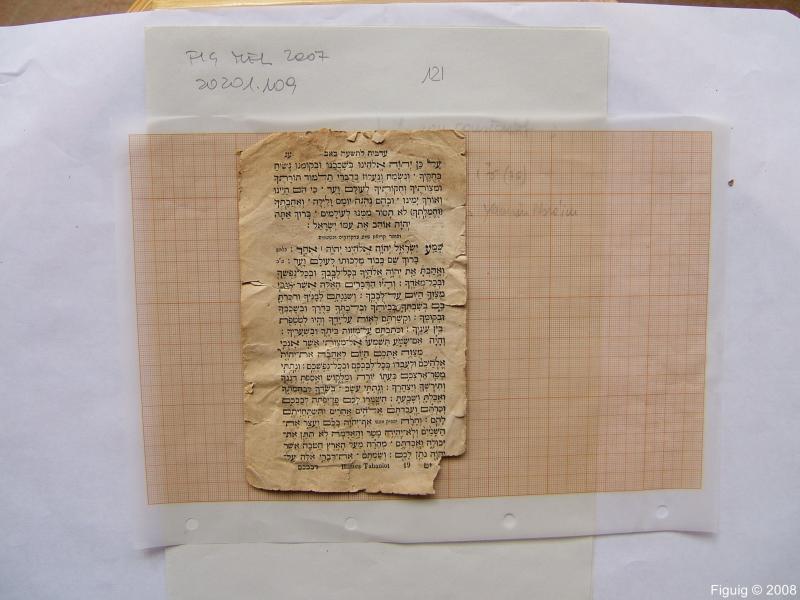 FIG MEL 2007
20201.109
121
ערבית לתשעה באב
עַל כֵּן יְהוָה אֱלֹהֵינוּ בְּשָׁכְבֵנוּ וּבְקוּמֵנוּ נָשִׂיחַ
בְּחֻקֶּיךָ · וְנִשְׂמַח וְנַעֲלוֹז בְּדִבְרֵי תַלְמוּד תּוֹרָתֶךָ
וּמִצְוֹתֶיךָ וְחֻקּוֹתֶיךָ לְעוֹלָם וָעֶד · כִּי הֵם חַיֵּינוּ
וְאוֹרֶךְ יָמֵינוּ · וּבָהֶם נֶהְגֶּה יוֹמָם וָלַיְלָה · וְאַהֲבָתְךָ
לֹא תָסוּר מִמֶּנּוּ לְעוֹלָמִים · בָּרוּךְ אַתָּה
יְהוָה אוֹהֵב אֶת עַמּוֹ יִשְׂרָאֵל :
שְׁמַע יִשְׂרָאֵל יְהוָה אֱלֹהֵינוּ יְהוָה · אֶחָד :
בָּרוּךְ שֵׁם כְּבוֹד מַלְכוּתוֹ לְעוֹלָם וָעֶד :
וְאָהַבְתָּ אֵת יְהוָה אֱלֹהֶיךָ בְּכָל־לְבָבְךָ וּבְכָל־נַפְשְׁךָ
וּבְכָל־מְאֹדֶךָ : וְהָיוּ הַדְּבָרִים הָאֵלֶּה אֲשֶׁר אָנֹכִי
מְצַוְּךָ הַיּוֹם עַל־לְבָבֶךָ : וְשִׁנַּנְתָּם לְבָנֶיךָ וְדִבַּרְתָּ
בָּם בְּשִׁבְתְּךָ בְּבֵיתֶךָ וּבְלֶכְתְּךָ בַדֶּרֶךְ וּבְשָׁכְבְּךָ
וּבְקוּמֶךָ : וּקְשַׁרְתָּם לְאוֹת עַל־יָדֶךָ וְהָיוּ לְטֹטָפֹת
בֵּין עֵינֶיךָ : וּכְתַבְתָּם עַל־מְזֻזוֹת בֵּיתֶךָ וּבִשְׁעָרֶיךָ :
וְהָיָה אִם־שָׁמֹעַ תִּשְׁמְעוּ אֶל־מִצְוֹתַי אֲשֶׁר אָנֹכִי
מְצַוֶּה אֶתְכֶם הַיּוֹם לְאַהֲבָה אֶת־יְהוָה
אֱלֹהֵיכֶם וּלְעָבְדוֹ בְּכָל־לְבַבְכֶם וּבְכָל־נַפְשְׁכֶם : וְנָתַתִּי
מְטַר־אַרְצְכֶם בְּעִתּוֹ יוֹרֶה וּמַלְקוֹשׁ וְאָסַפְתָּ דְגָנֶךָ
וְתִירֹשְׁךָ וְיִצְהָרֶךָ : וְנָתַתִּי עֵשֶׂב · בְּשָׂדְךָ לִבְהֶמְתֶּךָ
וְאָכַלְתָּ וְשָׂבָעְתָּ : הִשָּׁמְרוּ לָכֶם פֶּן־יִפְתֶּה לְבַבְכֶם
וְסַרְתֶּם וַעֲבַדְתֶּם אֱלֹהִים אֲחֵרִים וְהִשְׁתַּחֲוִיתֶם
לָהֶם : וְחָרָה אַף־יְהוָה בָּכֶם וְעָצַר אֶת־
הַשָּׁמַיִם וְלֹא־יִהְיֶה מָטָר וְהָאֲדָמָה לֹא תִתֵּן אֶת־
יְבוּלָהּ וַאֲבַדְתֶּם · מְהֵרָה מֵעַל הָאָרֶץ הַטֹּבָה אֲשֶׁר
יְהוָה נֹתֵן לָכֶם : וְשַׂמְתֶּם · אֶת־דְּבָרַי אֵלֶּה עַל־
לבבכם 19 יט
Figuig © 2008